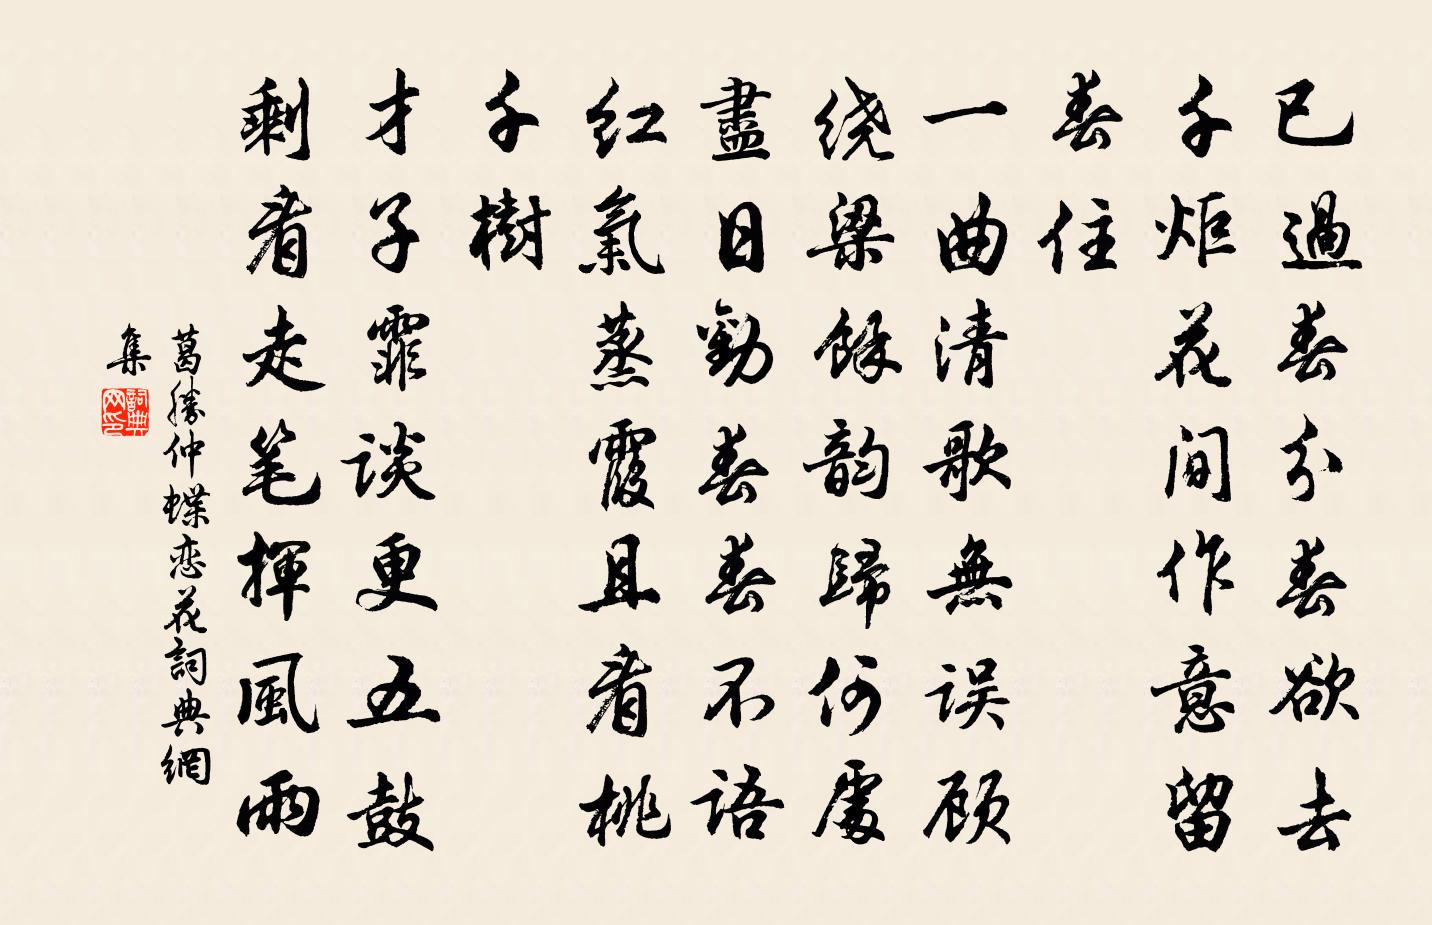 已過春分春欲去
千炬花间作意留
春住
一曲清歌無误顾
绕梁餘韵歸何處
盡日勸春春不语
红氣蒸霞且看桃
千樹
才子霏谈更五鼓
剩看走笔揮風雨
葛勝仲蝶恋花詞典網
集
詞典网印